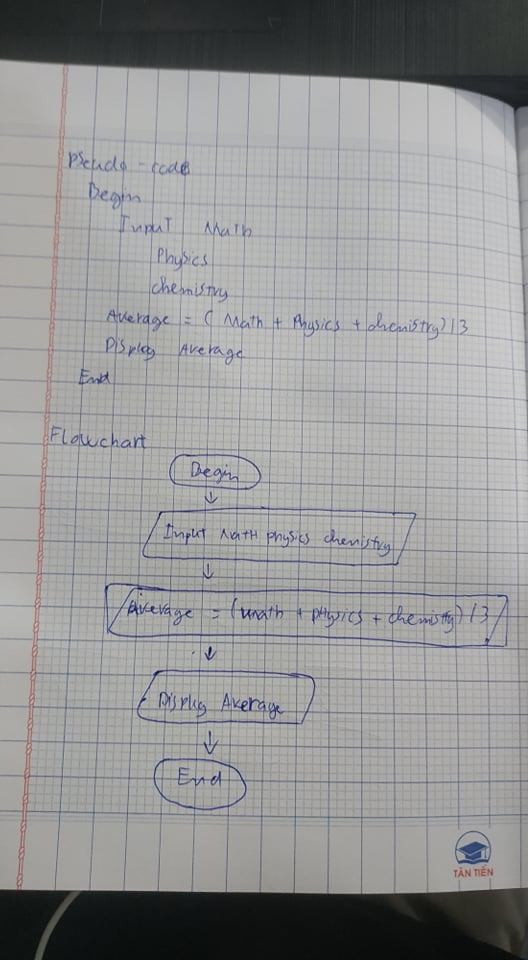 Pseudo-code
Begin
Input Math
Physics
chemistry
Average = ( Math + Physics + chemistry) / 3
Display Average
End
Flowchart
Begin
Input Math physics chemistry
Average = (math + physics + chemistry) / 3
Display Average
End
TÂN TIẾN